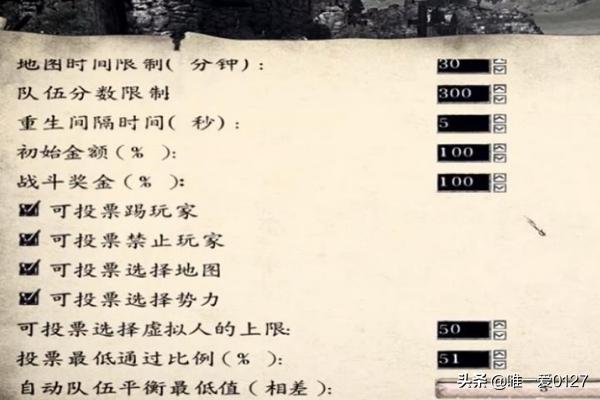 地图时间限制( 分钟): 30
队伍分数限制 300
重生间隔时间( 秒): 5
初始金额(% ): 100
战斗奖金(% ): 100
可投票踢玩家
可投票禁止玩家
可投票选择地图
可投票选择势力
可投票选择虚拟人的上限: 50
投票最低通过比例(% ): 51
自动队伍平衡最低值(相差):
头条 @唯一爱0127